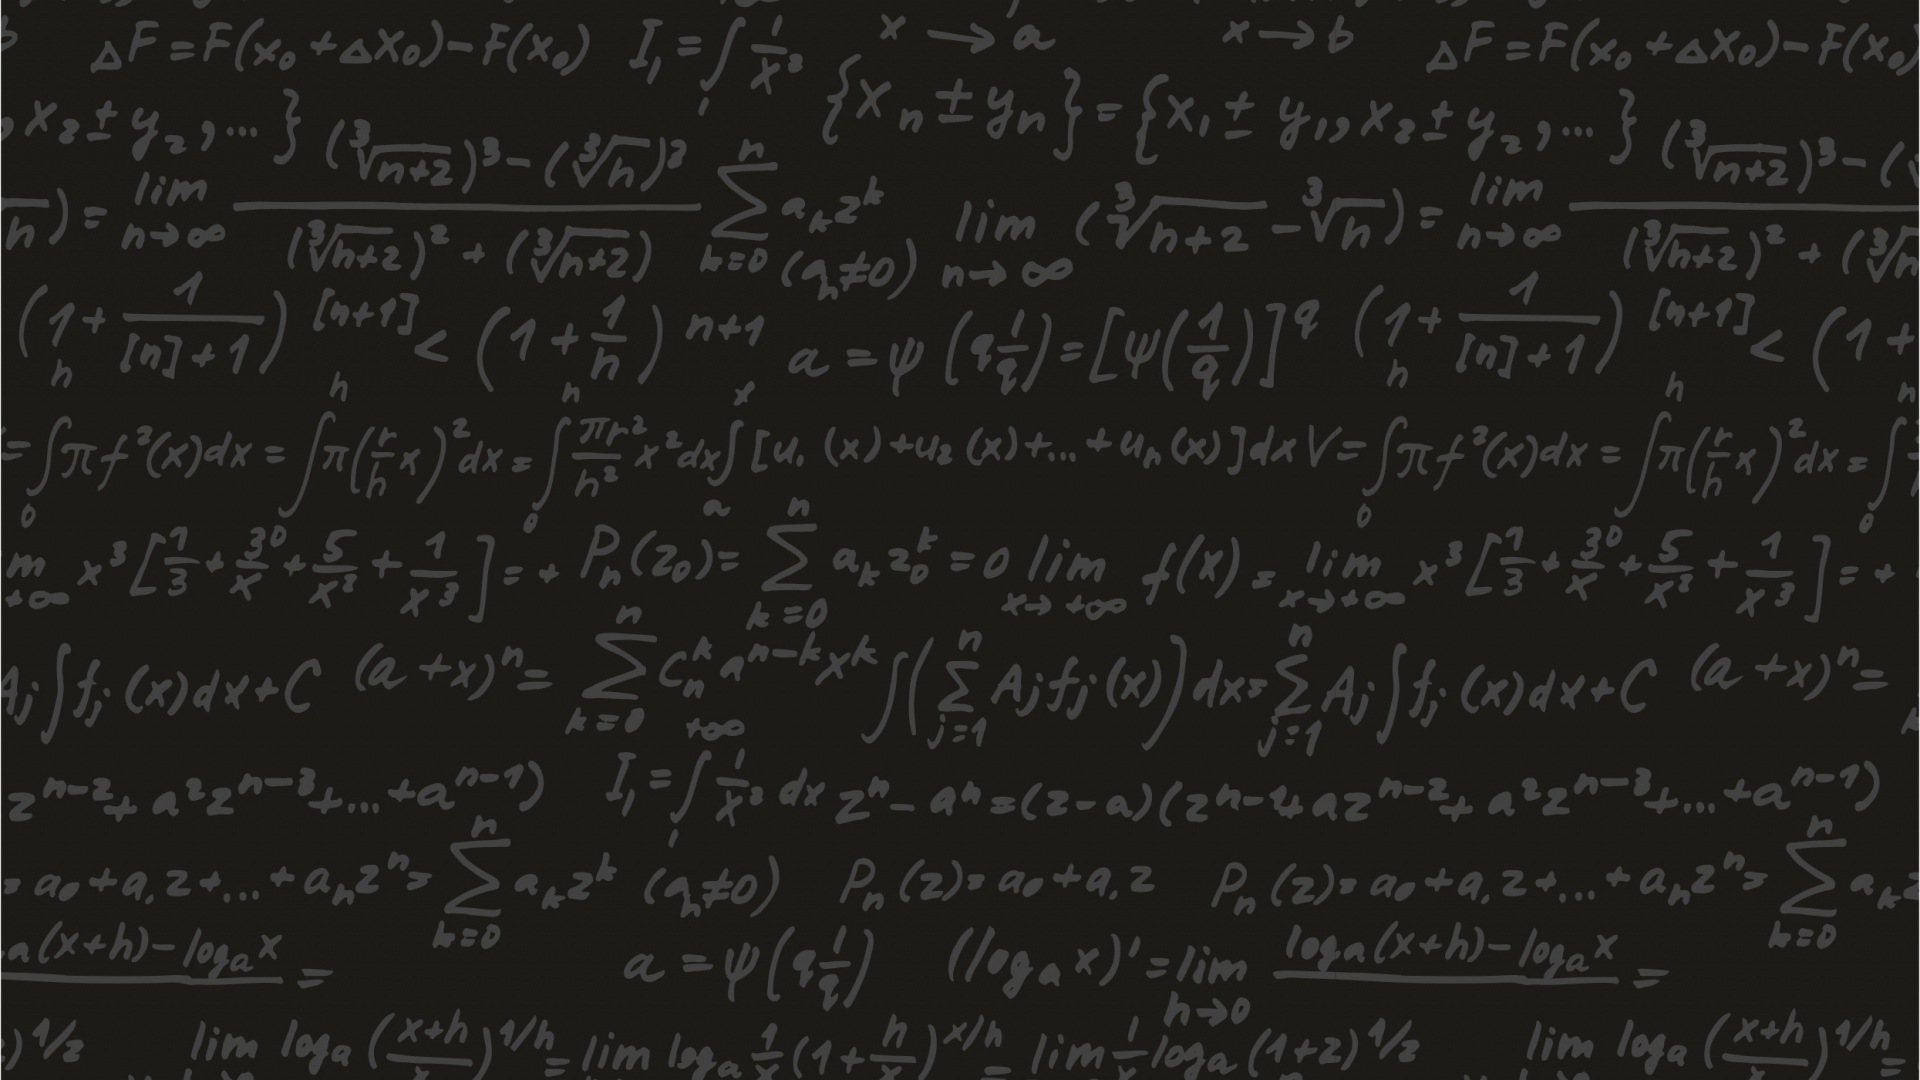 ΔF = F(x₀ + Δx₀) − F(x₀) I₁ = ∫ 1/x³ x → a x → b ΔF = F(x₀ + Δx₀) − F(x₀)
x₂ ± y₂, ... } {xₙ ± yₙ} = {x₁ ± y₁, x₂ ± y₂, ... }
h) = lim n→∞ ((∛n+2)³ − (∛h)³) / ((∛h+2)² + (∛n+2)) Σ k=0 n aₖzᵏ (aₕ≠0) lim n→∞ (∛n+2 − ∛n) = lim n→∞ (∛n+2)³ − ( (∛h+2)² + (∛n
(1 + 1/([n]+1)) [n+1] < (1 + 1/n) n+1 a = ψ(q 1/q) = [ψ(1/q)]^q (1 + 1/([n]+1)) [n+1] < (1 +
= ∫ 0 h πf²(x)dx = ∫ π(r/h x)²dx = ∫ 0 h πr²/h² x²dx ∫ a x [u₁(x) + u₂(x) + ... + uₙ(x)]dx V = ∫ 0 h πf²(x)dx = ∫ π(r/h x)²dx = ∫ 0 h
m +∞ x³[1/3 + 3⁰/x + 5/x² + 1/x³] = + Pₙ(z₀) = Σ k=0 n aₖz₀ᵏ = 0 lim x→+∞ f(x) = lim x→+∞ x³[1/3 + 3⁰/x + 5/x² + 1/x³] = +
Aⱼ∫fⱼ(x)dx + C (a + x)ⁿ = Σ k=0 n Cₙᵏ aⁿ⁻ᵏxᵏ ∫(Σ j=1 n Aⱼfⱼ(x))dx = Σ j=1 n Aⱼ∫fⱼ(x)dx + C (a + x)ⁿ =
zⁿ⁻² + a²zⁿ⁻³ + ... + aⁿ⁻¹) I₁ = ∫ 1 +∞ 1/x³ dx zⁿ − aⁿ = (z − a)(zⁿ⁻¹ + azⁿ⁻² + a²zⁿ⁻³ + ... + aⁿ⁻¹)
= a₀ + a₁z + ... + aₙzⁿ = Σ k=0 n aₖzᵏ (aₕ≠0) Pₙ(z) = a₀ + a₁z Pₙ(z) = a₀ + a₁z + ... + aₙzⁿ = Σ k=0 n aₖz
a(x+h) − logₐx = a = ψ(q 1/q) (logₐx)' = lim h→0 logₐ(x+h) − logₐx =
)^1/2 lim logₐ((x+h)/x)^1/h = lim logₐ 1/x (1 + h/x)^x/h = lim 1/x logₐ(1+z)^1/2 lim logₐ((x+h)/x)^1/h =